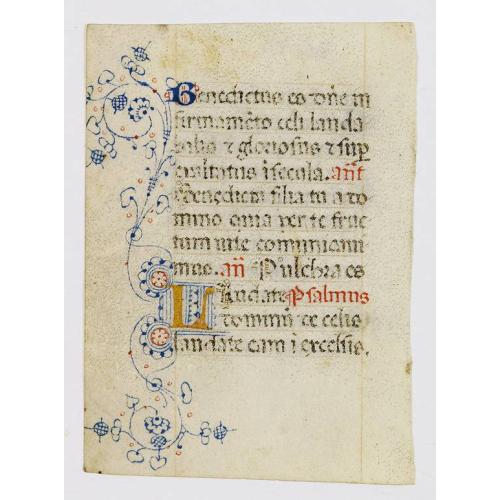 Benedictus es dñe in
firmamẽto celi lauda
bilis ⁊ gloriosus ⁊ sup
exaltatus ĩ secula. añt
Benedicta filia tu a do
mino quia per te fruc
tum vite comunicaui
mus. añ Pulchra es
Laudate Psalmus
dominũ de celis
laudate eum ĩ excelsis.